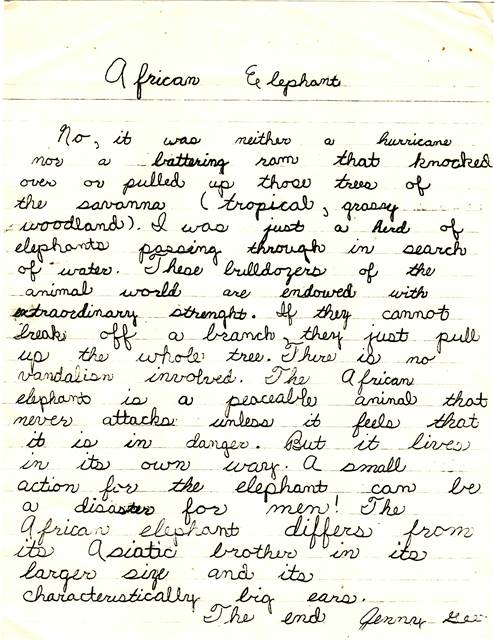 African Elephant
No, it was neither a hurricane
nor a battering ram that knocked
over or pulled up those trees of
the savanna (tropical, grassy
woodland). I was just a herd of
elephants passing through in search
of water. These bulldozers of the
animal world are endowed with
extraordinary strenght. If they cannot
break off a branch, they just pull
up the whole tree. There is no
vandalism involved. The African
elephant is a peaceable animal that
never attacks unless it feels that
it is in danger. But it lives
in its own way. A small
action for the elephant can be
a disaster for men! The
African elephant differs from
its Asiatic brother in its
larger size and its
characteristically big ears.
The end Jenny